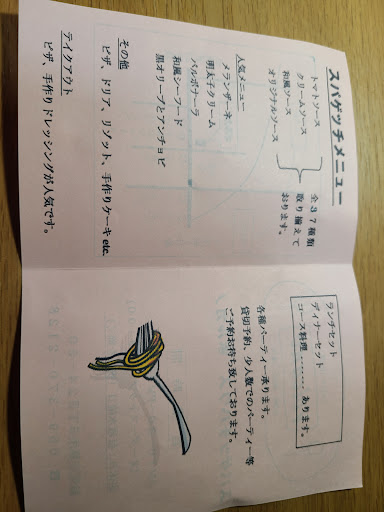 スパゲッチメニュー
トマトソース
クリームソース
和風ソース
オリジナルソース
全37種類
取り揃えて
おります。
人気メニュー
メランザーネ
明太子クリーム
バルボナーラ
和風シーフード
黒オリーブとアンチョビ
その他
ピザ、ドリア、リゾット、手作りケーキetc.
テイクアウト
ピザ、手作りドレッシングが人気です。
ランチセット
ディナーセット
コース料理........ あります。
各種パーティー承ります。
貸切予約、少人数でのパーティー等
ご予約お待ち致しております。